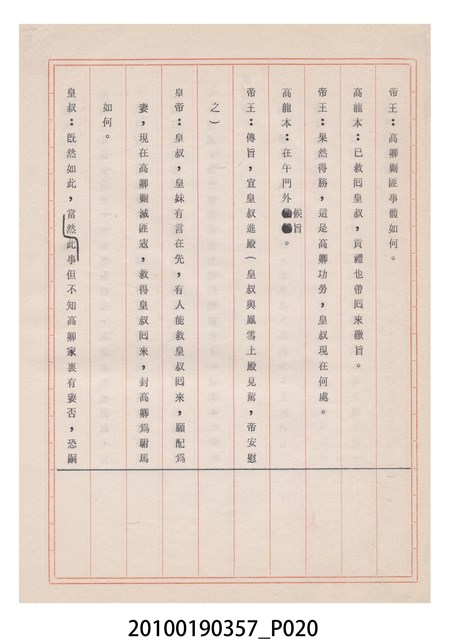 帝王：高卿剿匪事體如何。
高龍本：已救囘皇叔，貢禮也帶囘來繳旨。
帝王：果然得勝，這是高卿功勞，皇叔現在何處。
高龍本：在午門外候旨。
帝王：傳旨，宣皇叔進殿（皇叔與鳳雪上殿見駕，帝安慰
之）
皇帝：皇叔，皇妹有言在先，有人能救皇叔囘來，願配爲
妻，現在高卿剿滅匪寇，救得皇叔囘來，封高卿爲駙馬
如何。
皇叔：旣然如此，當然此事但不知高卿家裏有妻否，恐嗣
20100190357_P020